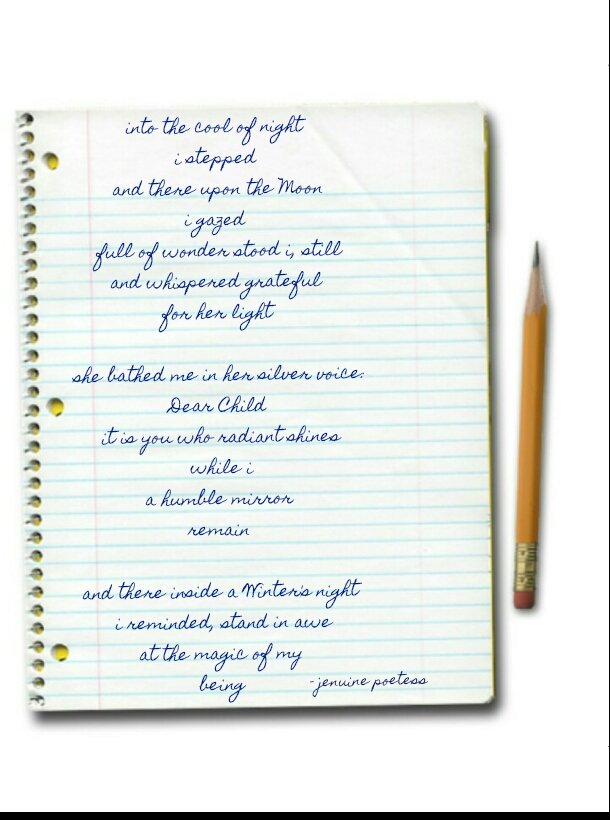 into the cool of night
i stepped
and there upon the Moon
i gazed
full of wonder stood i, still
and whispered grateful
for her light
she bathed me in her silver voice:
Dear Child
it is you who radiant shines
while i
a humble mirror
remain
and there inside a Winter's night
i reminded, stand in awe
at the magic of my
being -jenuine poetess